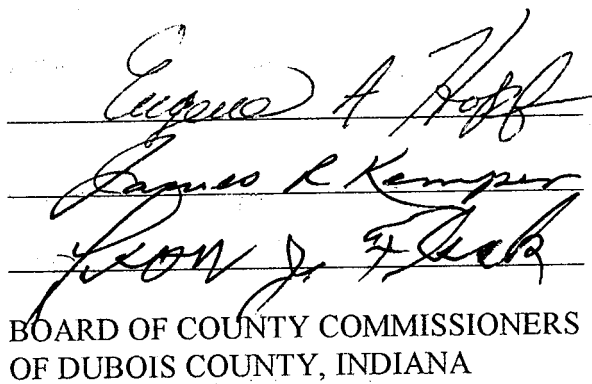 Eugene A Hoff
James R Kemper
Leon J. Fleck
BOARD OF COUNTY COMMISSIONERS
OF DUBOIS COUNTY, INDIANA